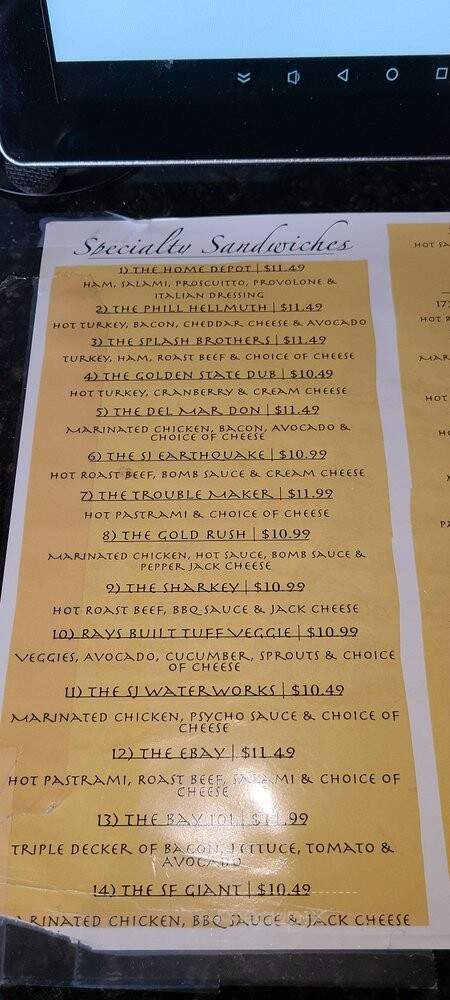 Specialty Sandwiches
1) THE HOME DEPOT | $11.49
HAM, SALAMI, PROSCUITTO, PROVOLONE &
ITALIAN DRESSING
2) THE PHILL HELLMUTH | $11.49
HOT TURKEY, BACON, CHEDDAR CHEESE & AVOCADO
3) THE SPLASH BROTHERS | $11.49
TURKEY, HAM, ROAST BEEF & CHOICE OF CHEESE
4) THE GOLDEN STATE DUB | $10.49
HOT TURKEY, CRANBERRY & CREAM CHEESE
5) THE DEL MAR DON | $11.49
MARINATED CHICKEN, BACON, AVOCADO &
CHOICE OF CHEESE
6) THE SJ EARTHQUAKE | $10.99
HOT ROAST BEEF, BOMB SAUCE & CREAM CHEESE
7) THE TROUBLE MAKER | $11.99
HOT PASTRAMI & CHOICE OF CHEESE
8) THE GOLD RUSH | $10.99
MARINATED CHICKEN, HOT SAUCE, BOMB SAUCE &
PEPPER JACK CHEESE
9) THE SHARKEY | $10.99
HOT ROAST BEEF, BBQ SAUCE & JACK CHEESE
10) RAYS BUILT TUFF VEGGIE | $10.99
VEGGIES, AVOCADO, CUCUMBER, SPROUTS & CHOICE
OF CHEESE
11) THE SJ WATERWORKS | $10.49
MARINATED CHICKEN, PSYCHO SAUCE & CHOICE OF
CHEESE
12) THE EBAY | $11.49
HOT PASTRAMI, ROAST BEEF, SALAMI & CHOICE OF
CHEESE
13) THE BAY 101 | $11.99
TRIPLE DECKER OF BACON, LETTUCE, TOMATO &
AVOCADO
14) THE SF GIANT | $10.49
RINATED CHICKEN, BBQ SAUCE & JACK CHEESE
HOT SA
17)
HOT
MAR
HOT